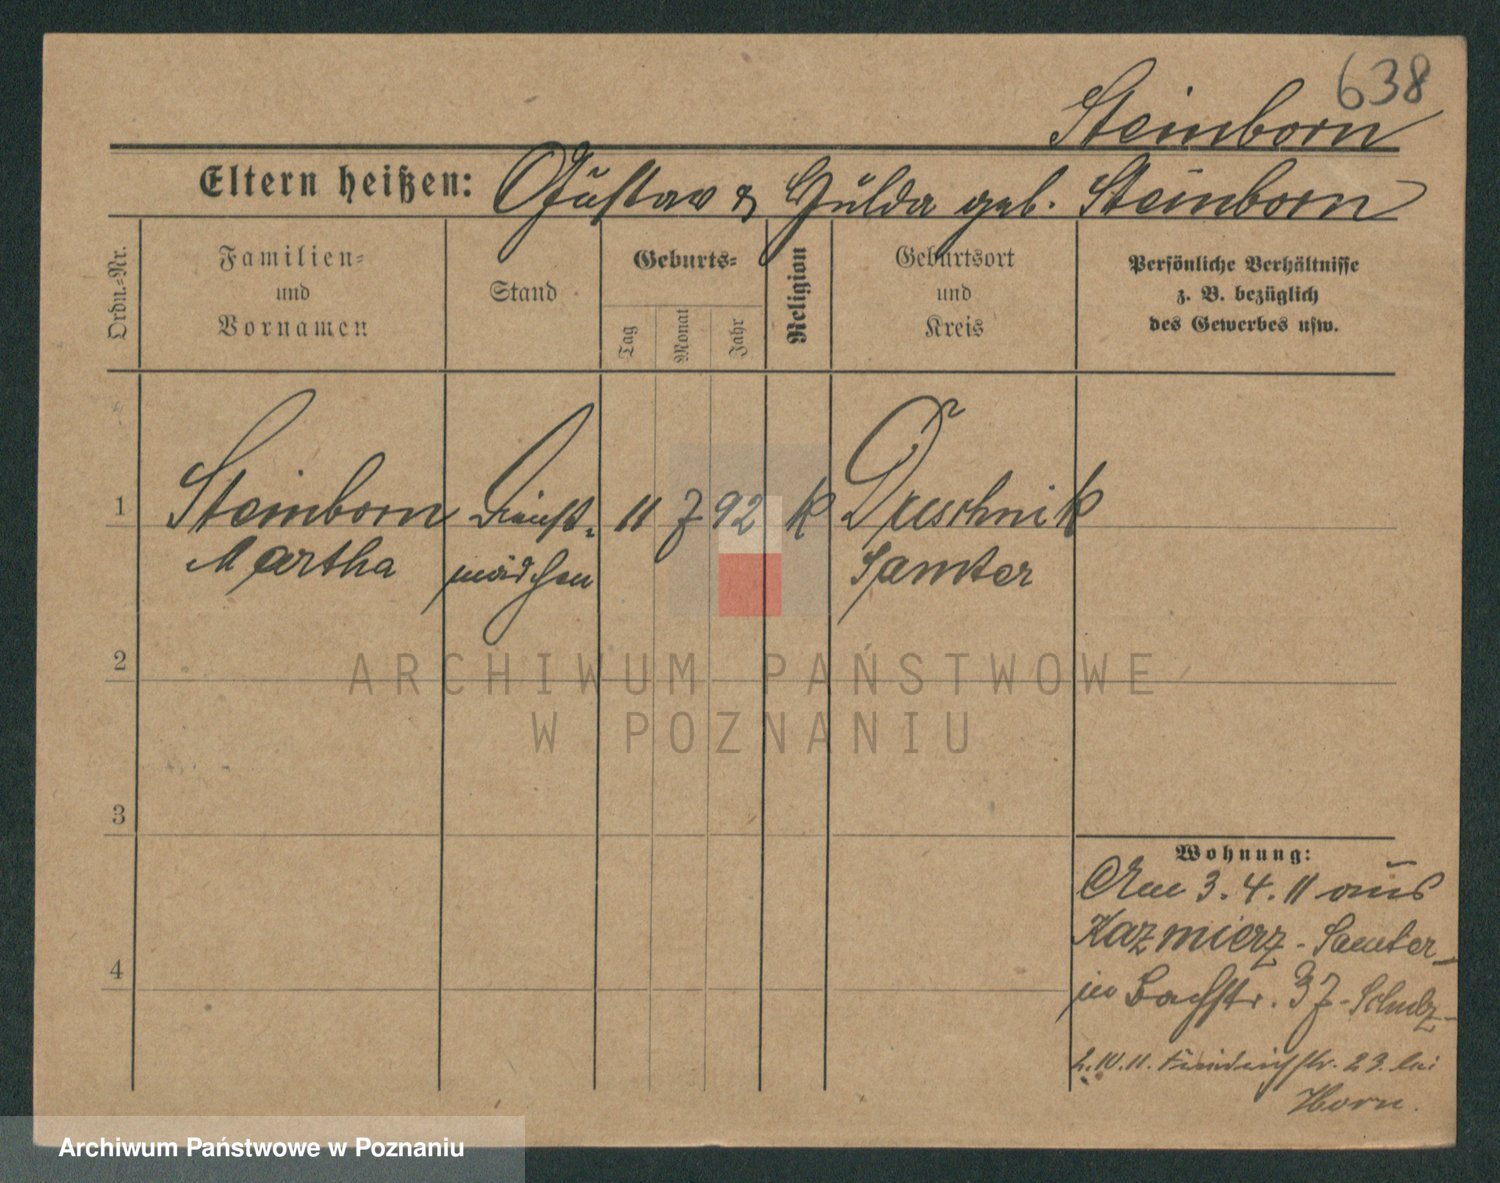 638
Steinborn
Eltern heißen: Gustav & Hulda geb. Steinborn
Ordn.-Nr.
Familien-
und
Vornamen
Stand
Geburts-
Tag
Monat
Jahr
Religion
Geburtsort
und
Kreis
Persönliche Verhältnisse
z. B. bezüglich
des Gewerbes usw.
1 Steinborn Dienst- 11 7 92 k Duschnik
Martha mädchen Samter
2
3
4
Wohnung:
Am 3.4.11 aus
Kazmierz-Samter
in Bachstr. 37-Schulz
2.IV.11. Friedrichstr. 23. bei
Horn.
ARCHIWUM PAŃSTWOWE
W POZNANIU
Archiwum Państwowe w Poznaniu